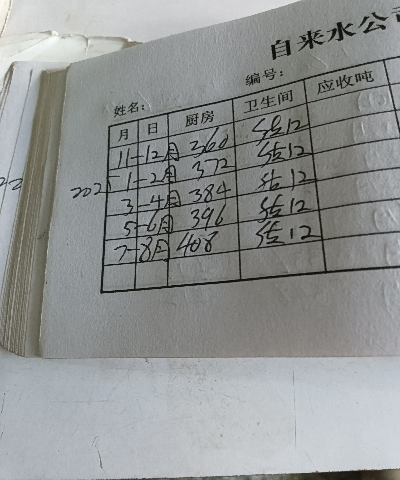 自来水公司
姓名： 编号：
月 日 厨房 卫生间 应收吨
11-12月 360 估12
2025 1-2月 372 估12
3-4月 384 估12
5-6月 396 估12
7-8月 408 估12